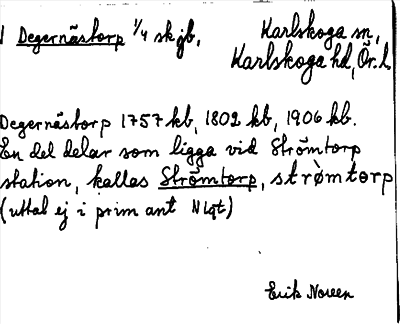 1 Degernästorp 1/4 sk jb, Karlskoga sn,
Karlskoga hd, Ör. l.
Degernästorp 1757 kb, 1802 kb, 1906 kb.
En del delar som ligga vid Strömtorp
station, kallas Strömtorp, strømtorp
(uttal ej i prim ant Nlqt)
Erik Noreen